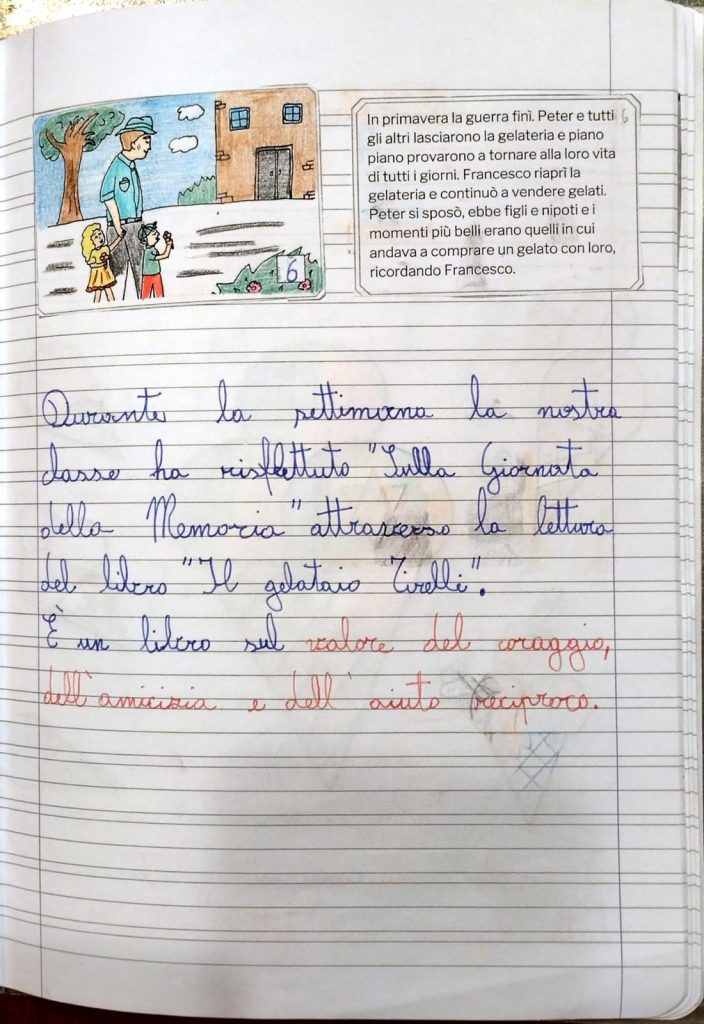 6
In primavera la guerra finì. Peter e tutti 6
gli altri lasciarono la gelateria e piano
piano provarono a tornare alla loro vita
di tutti i giorni. Francesco riaprì la
gelateria e continuò a vendere gelati.
Peter si sposò, ebbe figli e nipoti e i
momenti più belli erano quelli in cui
andava a comprare un gelato con loro,
ricordando Francesco.
Durante la settimana la nostra
classe ha risflettuto "Sulla Giornata
della Memoria" attraverso la lettura
del libro "Il gelataio Tirelli".
È un libro sul valore del coraggio,
dell'amicizia e dell'aiuto reciproco.